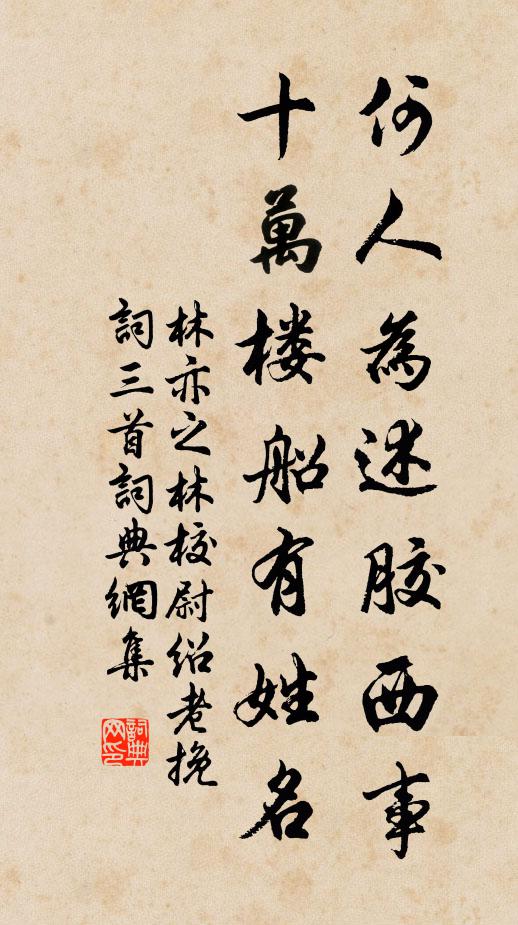 何人為述胶西事
十萬楼船有姓名
林亦之林校尉绍老挽
詞三首詞典網集
詞典网印